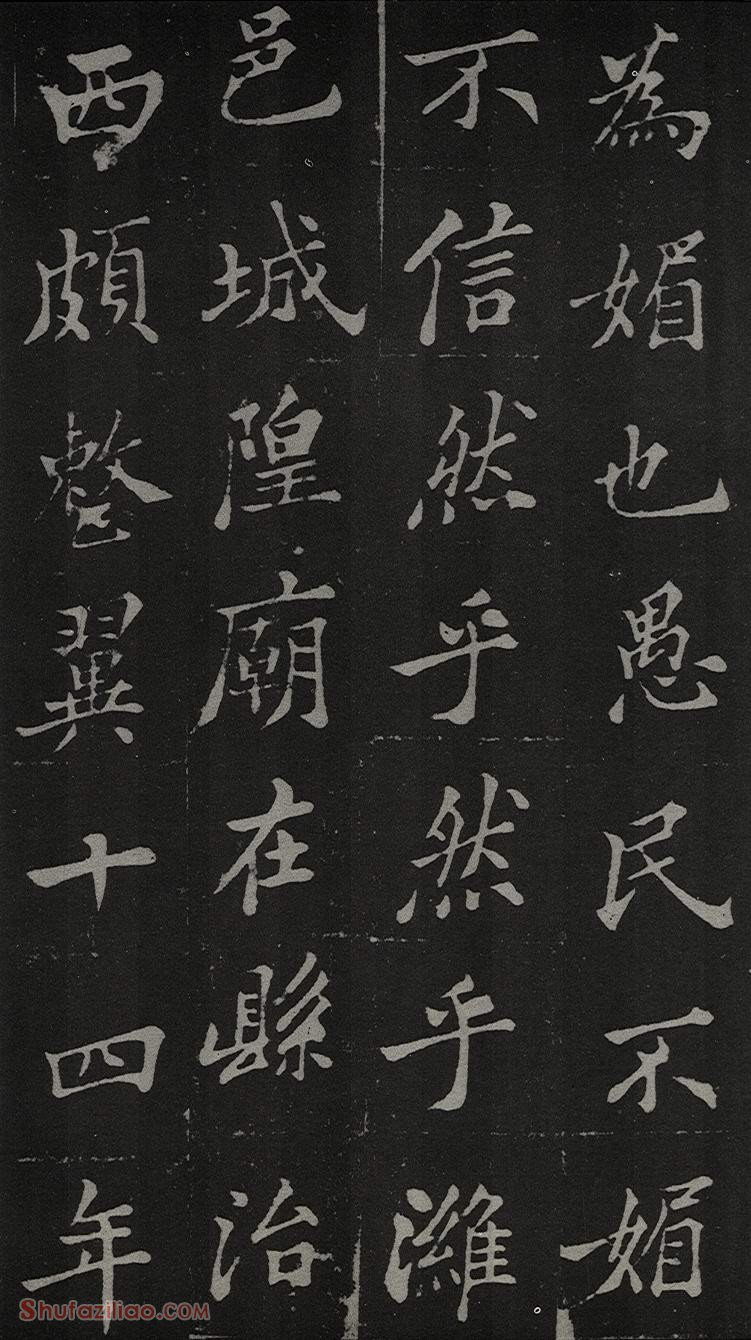 為媚也愚民不媚
不信然乎然乎濰
邑城隍廟在縣治
西頗整翼十四年
Shufaziliao.com